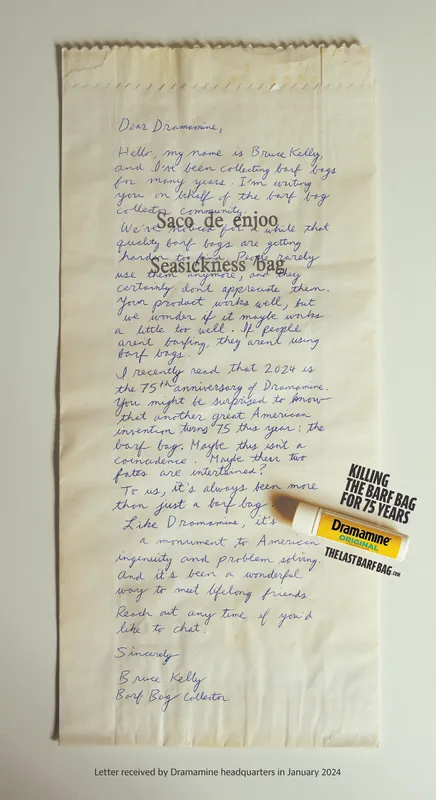 Dear Dramamine,
Hello, my name is Bruce Kelly,
and I've been collecting barf bags
for many years. I'm writing
you on behalf of the barf bag
collector community.
Saco de enjoo
We've noticed for a while that
quality barf bags are getting
harder to find. People rarely
Seasickness bag
use them anymore, and they
certainly don't appreciate them.
Your product works well, but
we wonder if it maybe works
a little too well. If people
aren't barfing, they aren't using
barf bags.
I recently read that 2024 is
the 75th anniversary of Dramamine.
You might be surprised to know
that another great American
invention turns 75 this year: the
barf bag. Maybe this isn't a
coincidence. Maybe their two
fates are intertwined?
To us, it's always been more
than just a barf bag
Like Dramamine, it's
a monument to American
ingenuity and problem solving.
And it's been a wonderful
way to meet lifelong friends.
Reach out any time if you'd
like to chat.
Sincerely
Bruce Kelly
Barf Bag Collector
KILLING
THE BARF BAG
FOR 75 YEARS
Dramamine
ORIGINAL
THELASTBARFBAG.COM
Letter received by Dramamine headquarters in January 2024